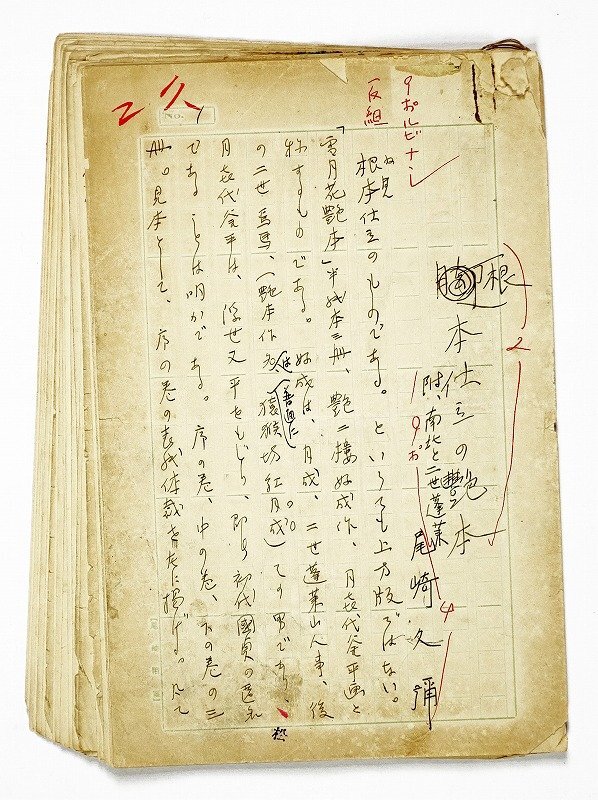 根本仕立の艶本
附、南北と二世蓬莱
尾崎久彌
9ポルビナシ
19ポ
2
4
根本仕立のものである。といつても上方版ではない。
「雪月花艶本」半紙本三冊、艶二楼好成作、月㐂代釜平画と
称するものである。好成は、月成、二世蓬莱山人事、後
の二世焉馬、（艶本作名は普通に猿猴坊月成）その男であり、
月㐂代釜平は、浮世又平をもじり、即ち初代國貞の匿名
であることは明かである。序の巻、中の巻、下の巻の三
冊。見本として、序の巻の表紙体裁を左に掲げる。
2 久
NO.
1